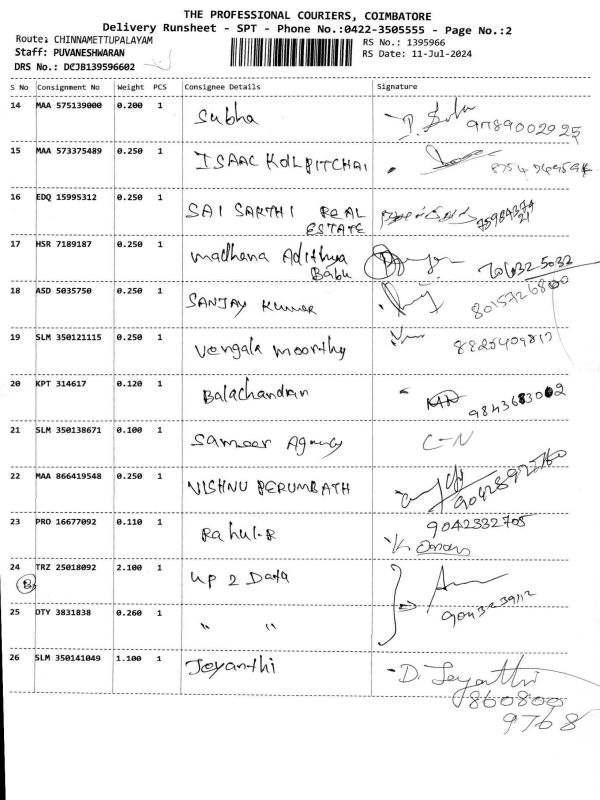 THE PROFESSIONAL COURIERS, COIMBATORE
Delivery Runsheet - SPT - Phone No.:0422-3505555 - Page No.:2
Route: CHINNAMETTUPALAYAM RS No.: 1395966
Staff: PUVANESHWARAN RS Date: 11-Jul-2024
DRS No.: DCJB139596602
S No Consignment No Weight PCS Consignee Details Signature
14 MAA 575139000 0.200 1 Subha 9789002925
15 MAA 573375489 0.250 1 ISAAC
16 EDQ 15995312 0.250 1 SAI SARTHI REAL
ESTATE
17 HSR 7189187 0.250 1 Madhana Adithya
Babu
18 ASD 5035750 0.250 1 SANJAY Kumar 8015726800
19 SLM 350121115 0.250 1 Vengala moorthy
20 KPT 314617 0.120 1 Balachandran
21 SLM 350138671 0.100 1 Sameer Agency C-N
22 MAA 866419548 0.250 1 VISHNU PERUMBATH
23 PRO 16677092 0.110 1 Rahul.R 9042332705
24 TRZ 25018092 2.100 1 up 2 Data
25 OTY 3831838 0.260 1 " "
26 SLM 350141049 1.100 1 Jeyanthi D. Jeyanthi
860800
9768